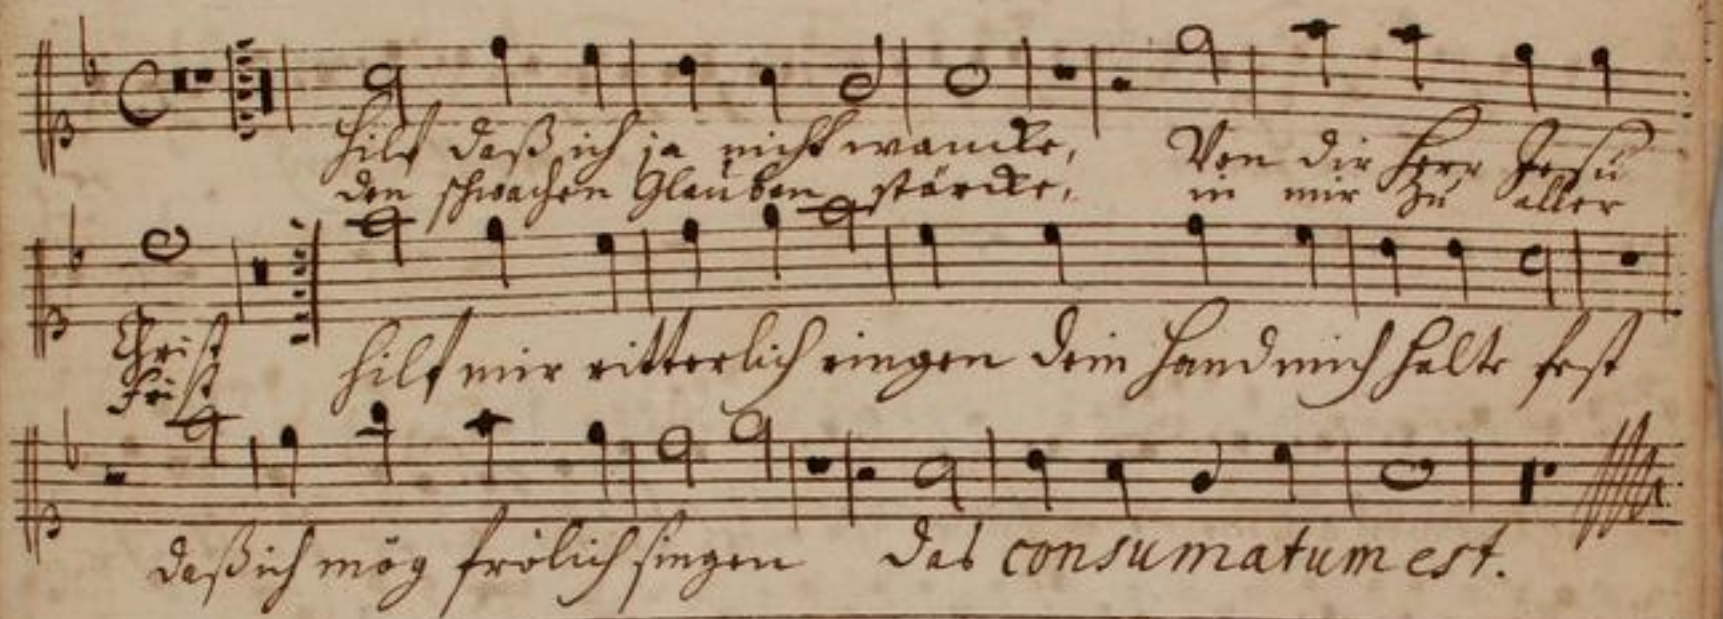 Hilf daß ich ja nicht wancke, Von dir Herr Jesu
den schwachen Glauben stärcke, in mir zu aller
Christ
Frist
hilf mir ritterlich ringen dein Hand mich halte fest
daß ich mög frölich singen das consumatum est.